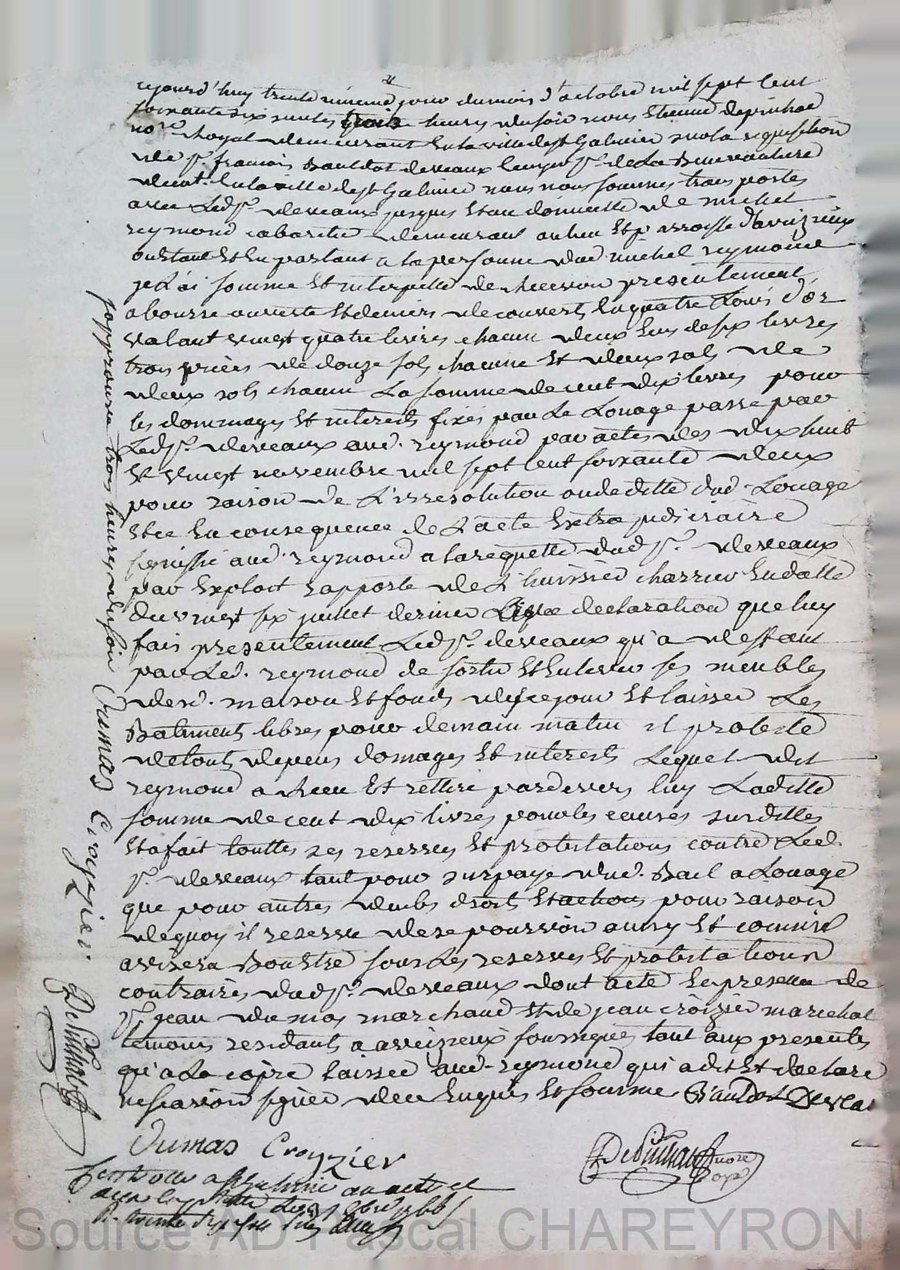 aujourd'huy trente unieme jour du mois d'octobre mil sept cent
soixante six sur les trois heures du soir nous Etienne depinhac
no.re Royal demeurant en la ville de st Galmier sur la requisition
de sr. francois Bauldot deveaux bourgeois sr. de La
demt. en la ville de st Galmier nous nous sommes transportes
avec Ledsr. deveaux jusques et au domicille de michel
reymond cabartier demeurant au lieu et parroisse d'aveizieux
ou etant et en parlant a la personne dud. michel reymond
je L'ai somme et interpelle de recevoir presentement
a bourse ouverte et deniers decouverts en quatre Louis d'or
valant vingt quatre livres chacun deux Ecus de six livres
trois pieces de douze sols chacune et deux sols de
deux sols chacun La somme de cent dix livres pour
les dommages et interets fixes par Le Louage passe par
Ledsr. deveaux aud. reymond par actes des dix huit
et vingt novembre mil sept cent soixante deux
pour raison de L'irresolution dud. Louage
et ce en consequence de L'acte Extra judiciaire
signiffié aud. reymond a la requette dudsr. deveaux
par Exploit rapporté de L'huissier charrin en datte
du vingt six juillet dernier declaration que luy
fait presentement Ledsr. deveaux qu'a deffaut
par Led. reymond de sortir et enlever ses meubles
desd. maison et fonds dans ce jour et laisser Les
Batiments libres pour demain matin il proteste
de touts depens domages et interets Lequel dit
reymond a receu et rettiré pardevers luy Laditte
somme de cent dix livres pour les causes susdittes
et a fait touttes ses reserves et protestations contre Led.
sr. deveaux tant pour surpaye dud. Bail a Louage
que pour autres deubs droits et actions pour raison
de quoy il reserve de se pourvoir ainsy et comme
avisera Bon etre sous Les reserves et protestations
contraires dudsr. deveaux dont acte En presence de
sr. jean dumas marchand et de jean croizier marechal
temoins residants a aveizieux soussignés tant aux presentes
qu'a La copie laissée aud. reymond qui a dit et declare
ne scavoir signer de ce enquis et somme Bauldot Deveau
Dumas Croyzier
Depinhac no.re
roy.
Controllé a st galmier
six sols
japprouve trois heures du soir Dumas Croyzier. Depinhac
Source AD Pascal CHAREYRON